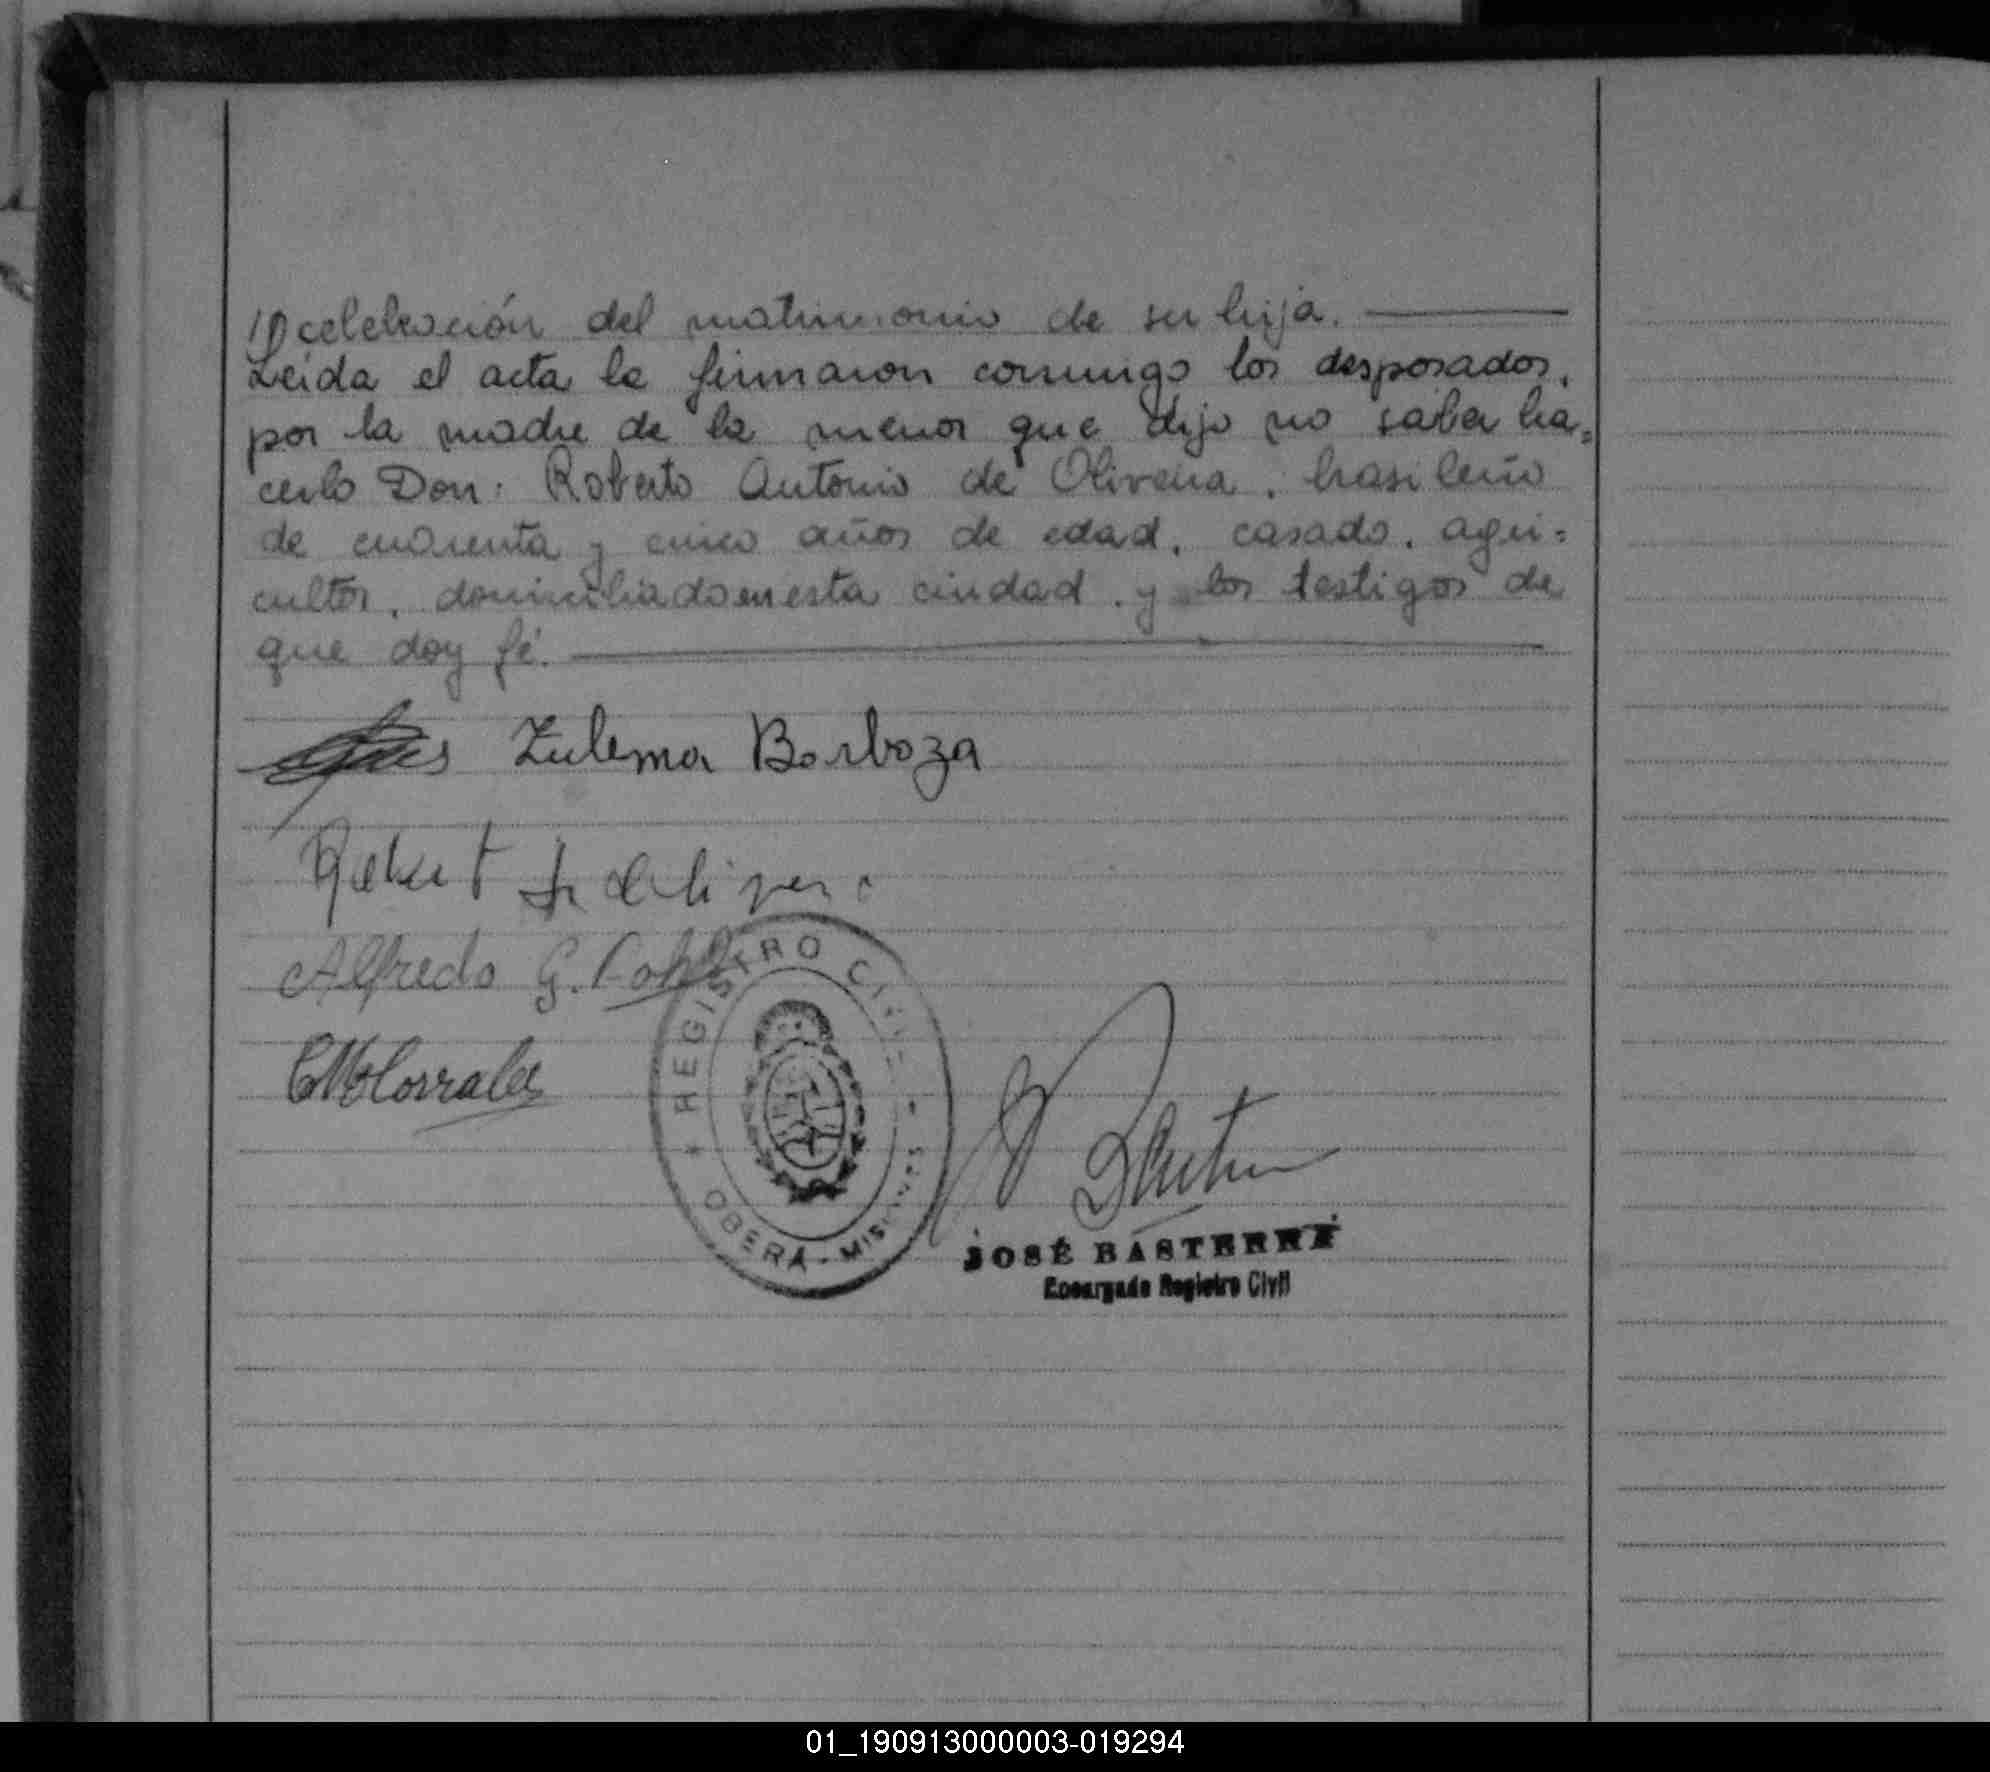 celebración del matrimonio de su hija.
Leída el acta la firmaron conmigo los desposados,
por la madre de la menor que dijo no saber ha=
cerlo Don: Roberto Antonio de Olivera, brasileño
de cuarenta y cinco años de edad, casado, agri=
cultor, domiciliado en esta ciudad, y los testigos de
que doy fé.
Zulema Barboza
Alfredo G.
REGISTRO CIVIL
OBERÁ - MISIONES
JOSÉ BASTERRÁ
Encargado Registro Civil
01_190913000003-019294